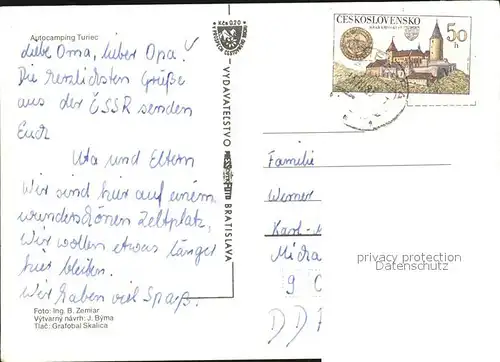 Autocamping Turiec
Liebe Oma, lieber Opa!
Die herzlichsten Grüße
aus der ČSSR senden
Euch
Uta und Eltern
Wir sind hier auf einem
wunderschönen Zeltplatz,
Wir wollen etwas länger
hier bleiben.
Wir haben viel Spaß.
Foto: Ing. B. Zemiar
Výtvarný návrh: J. Býma
Tlač: Grafobal Skalica
Kčs 0,20
VYDAVATEĽSTVO
BRATISLAVA
ČESKOSLOVENSKO
50
h
Familie
Werner
Karl-
Micha
9
DD
privacy protection
Datenschutz